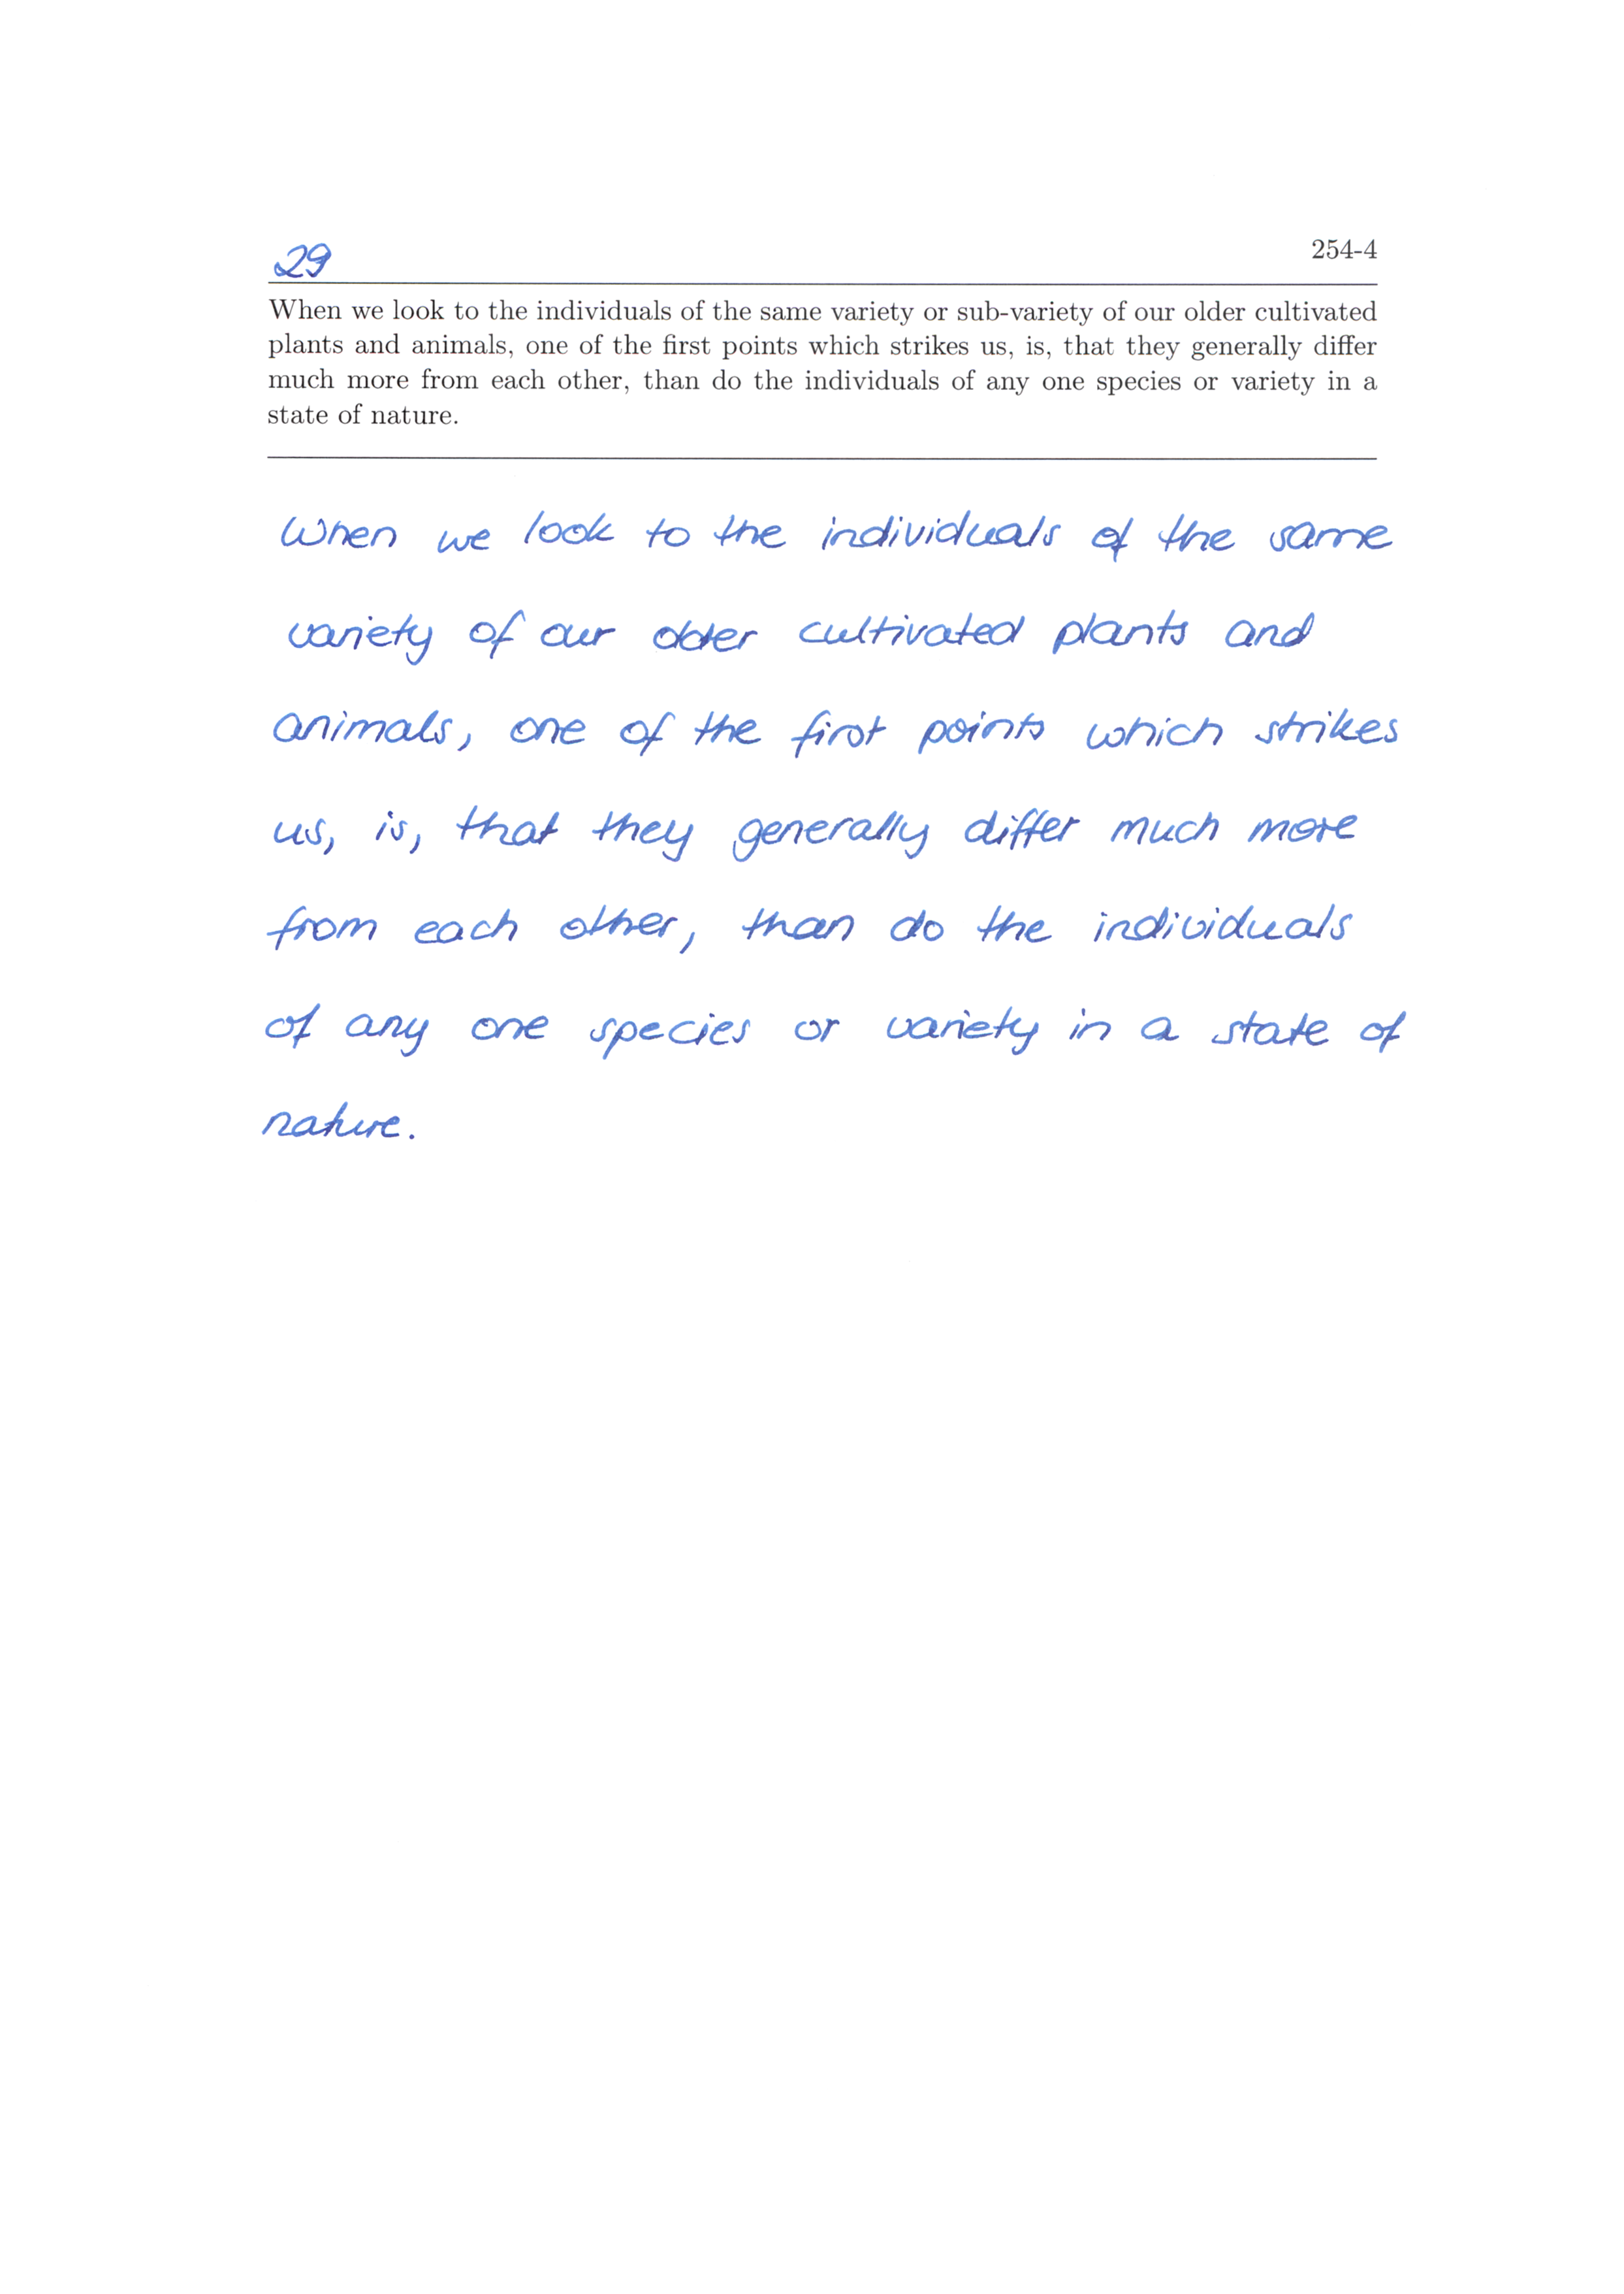 29
254-4
When we look to the individuals of the same variety or sub-variety of our older cultivated
plants and animals, one of the first points which strikes us, is, that they generally differ
much more from each other, than do the individuals of any one species or variety in a
state of nature.
When we look to the individuals of the same
variety of our older cultivated plants and
animals, one of the first points which strikes
us, is, that they generally differ much more
from each other, than do the individuals
of any one species or variety in a state of
nature.